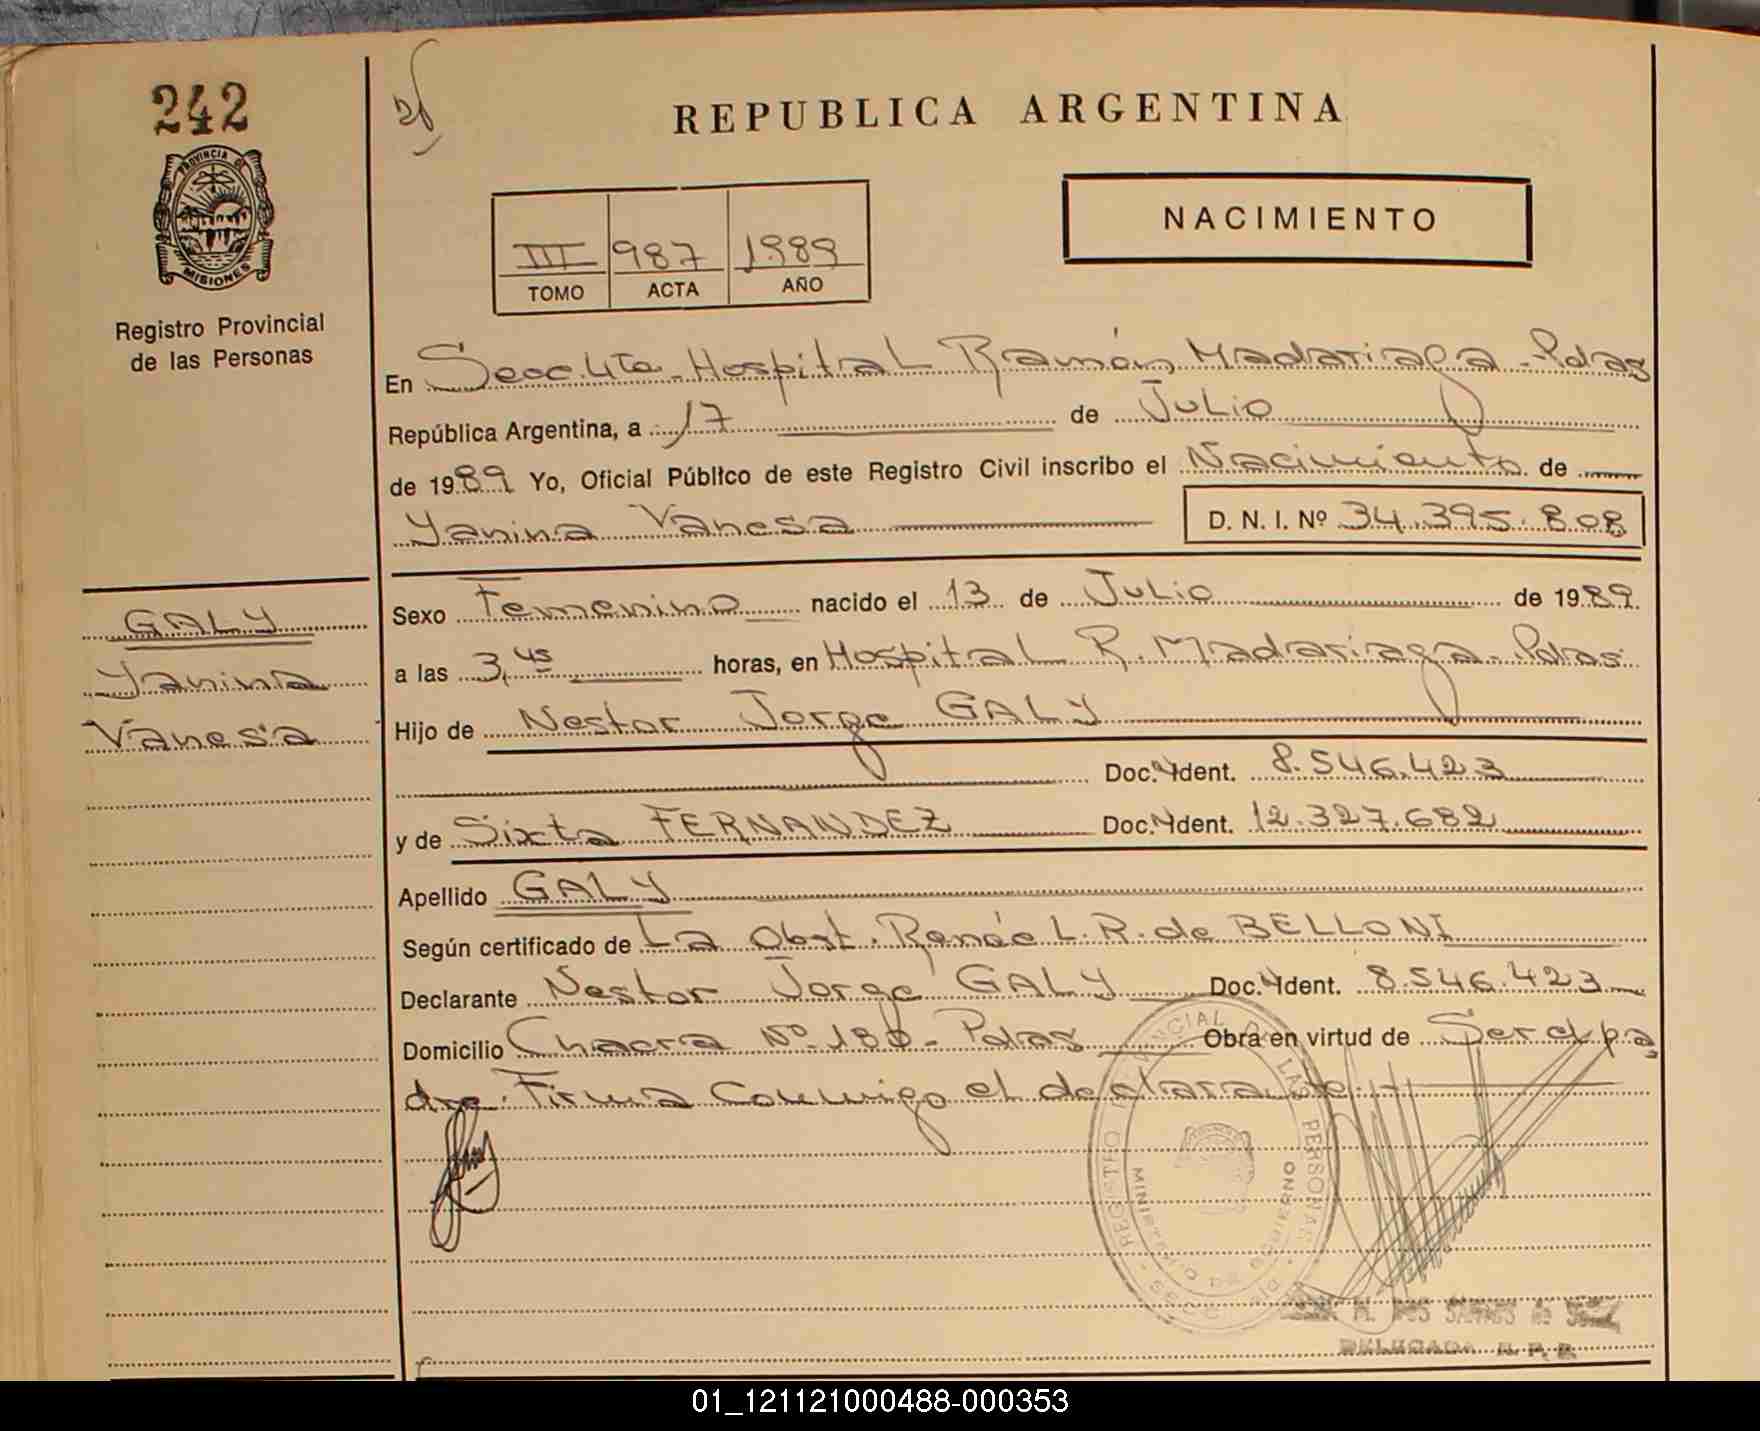 242
REPUBLICA ARGENTINA
PROVINCIA DE
MISIONES
Registro Provincial
de las Personas
III 987 1989
TOMO ACTA AÑO
NACIMIENTO
En Secc. 4ta. Hospital Ramón Madariaga - Pdas
República Argentina, a 17 de Julio
de 1989 Yo, Oficial Público de este Registro Civil inscribo el Nacimiento de
Yanina Vanesa D. N. I. Nº 34.395.808
GALY
Yanina
Vanesa
Sexo Femenino nacido el 13 de Julio de 1989
a las 3,45 horas, en Hospital R. Madariaga - Pdas
Hijo de Nestor Jorge GALY
Doc. Ident. 8.546.423
y de Sixta FERNANDEZ Doc. Ident. 12.327.682
Apellido GALY
Según certificado de La Obst. Renée L. R. de BELLONI
Declarante Nestor Jorge GALY Doc. Ident. 8.546.423
Domicilio Chacra Nº 180 - Pdas Obra en virtud de Ser el pa
dre. Firma Conmigo el declarante.
REGISTRO PROVINCIAL DE LAS PERSONAS
MINISTERIO DE GOBIERNO
M. DOS SANTOS de
DELEGADA R. P. P.
01_121121000488-000353